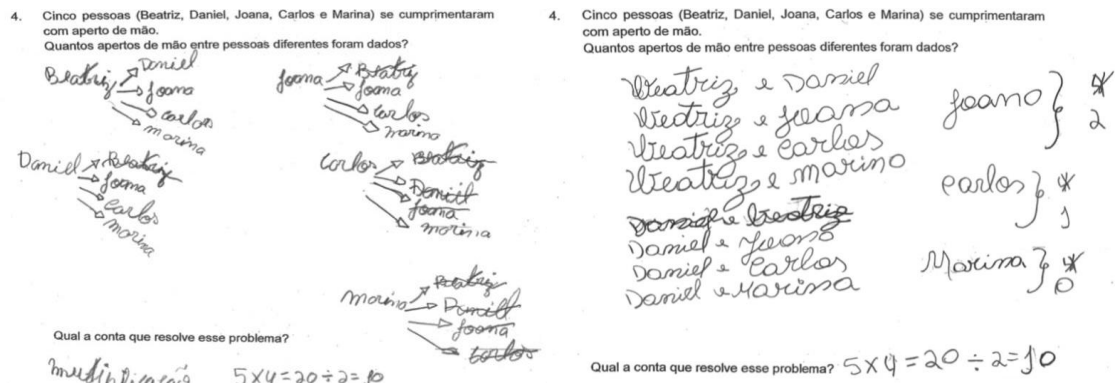 4. Cinco pessoas (Beatriz, Daniel, Joana, Carlos e Marina) se cumprimentaram
com aperto de mão.
Quantos apertos de mão entre pessoas diferentes foram dados?
Beatriz
Daniel
Joana
Carlos
Marina
Joana
Beatriz
Joana
Carlos
Marina
Daniel
Beatriz
Joana
Carlos
Marina
Carlos
Beatriz
Daniel
Joana
Marina
Marina
Beatriz
Daniel
Joana
Carlos
Qual a conta que resolve esse problema?
multiplicação 5x4=20÷2=10
4. Cinco pessoas (Beatriz, Daniel, Joana, Carlos e Marina) se cumprimentaram
com aperto de mão.
Quantos apertos de mão entre pessoas diferentes foram dados?
Beatriz e Daniel
Beatriz e Joana
Beatriz e Carlos
Beatriz e Marina
Daniel e Beatriz
Daniel e Joana
Daniel e Carlos
Daniel e Marina
Joana } 4
2
Carlos } 4
1
Marina } 4
0
Qual a conta que resolve esse problema? 5x4=20÷2=10